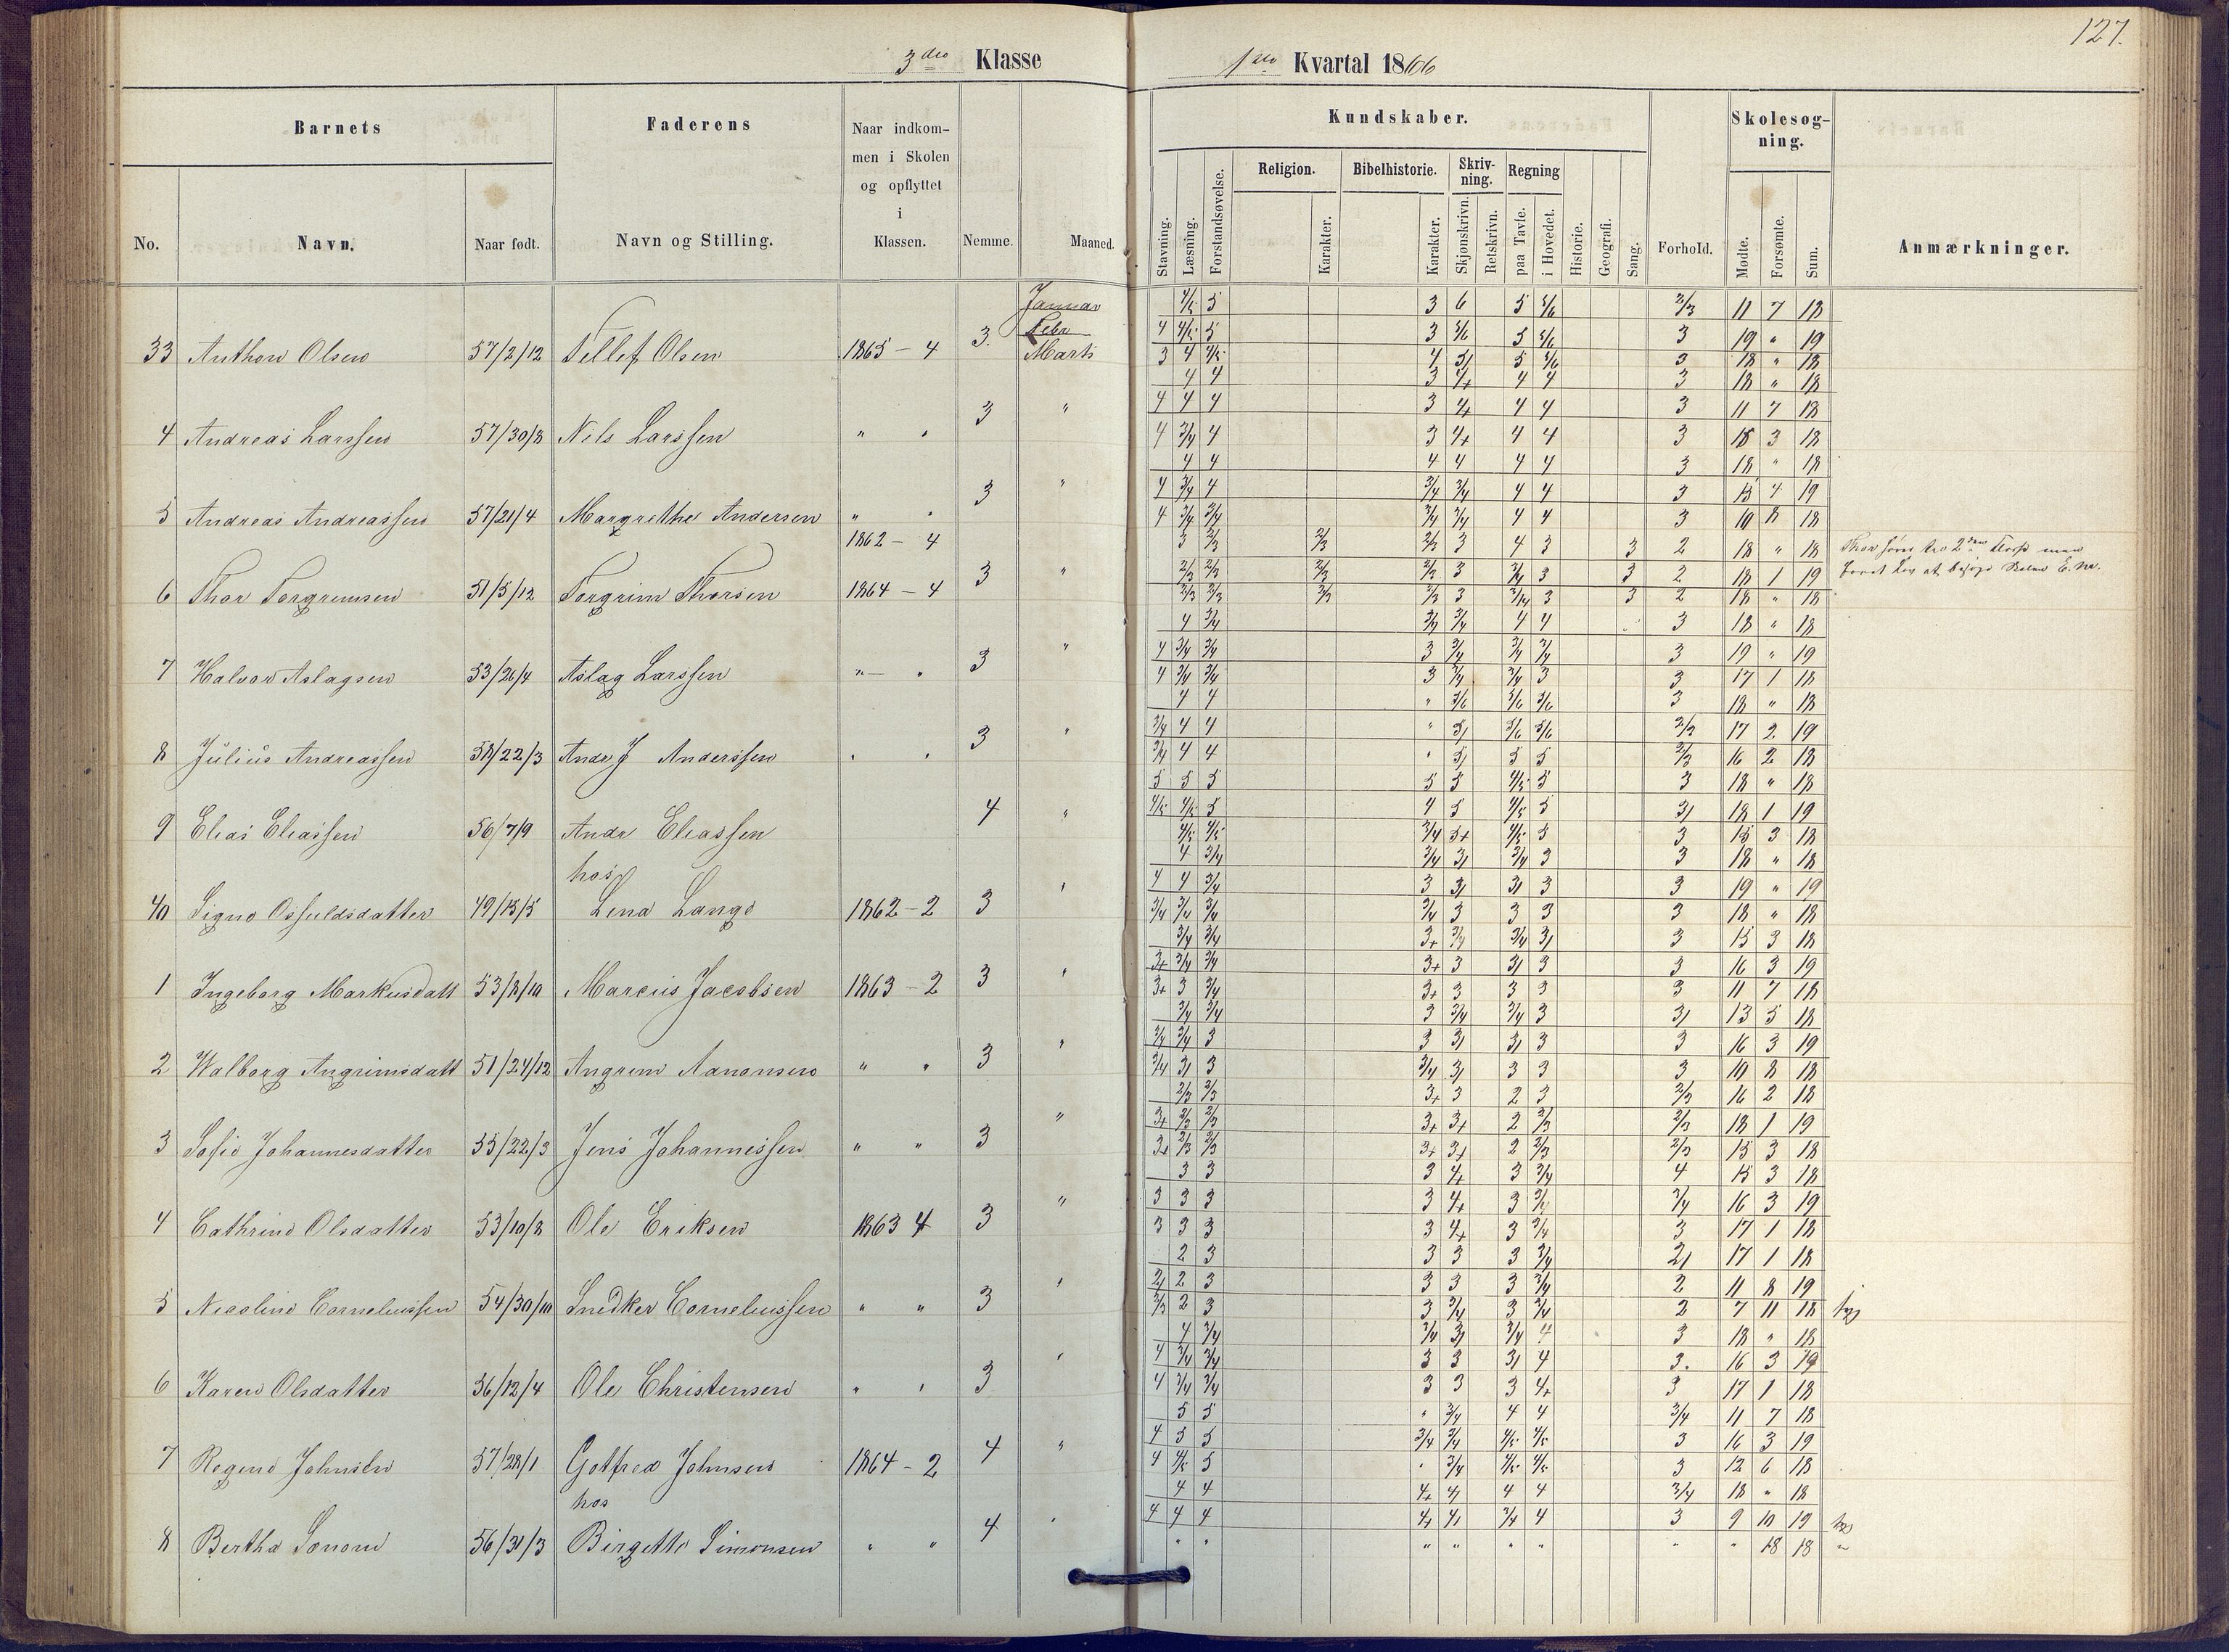 127.
3die Klasse
1ste Kvartal 1866
Barnets
Faderens
Naar indkom-
men i Skolen
og opflyttet
i
Klassen.
No.
Navn.
Naar født.
Navn og Stilling.
Nemme.
Maaned.
Kundskaber.
Skolesøg-
ning.
Religion.
Bibelhistorie.
Skriv-
ning.
Regning
Stavning.
Læsning.
Forstandsøvelse.
Karakter.
Karakter.
Skjønskrivn.
Retskrivn.
paa Tavle.
i Hovedet.
Historie.
Geografi.
Sang.
Forhold.
Mødte.
Forsømte.
Sum.
Anmærkninger.
Januar 4/5 5 3 6 5 5/6 2/3 11 7 18
Febr 4 4/5 5 3 5/6 5 5/6 3 19 " 19
33 Anthon Olsen 57/2/12 Tellef Olsen 1865 - 4 3. Marts 3 4 4/5 4 5/ 5 5/6 3 18 " 18
4 4 3 4+ 4 4 3 18 " 18
4 4 4 3 4+ 4 4 3 11 7 18
4 Andreas Larssen 57/30/8 Nils Larssen " " 3 " 4 3/4 4 3 4+ 4 4 3 15 3 18
4 4 4 4 4 4 3 18 " 18
4 3/4 4 3/4 3/4 4 4 3 15 4 19
5 Andreas Andreassen 57/21/4 Margrethe Andersen " " 3 " 4 3/4 3/4 3/4 3/4 4 4 3 10 8 18
1862 - 4 3 2/3 2/3 2/3 3 4 3 3 2 18 " 18
2/3 2/3 2/3 2/3 3 3/4 3 3 2 18 1 19
6 Thor Torgrimsen 51/5/12 Torgrim Thorsen 1864 - 4 3 " 2/3 2/3 2/3 2/3 3 3/4 3 3 2 18 " 18
4 3/4 3/4 3/4 4 4 3 18 " 18
4 3/4 3/4 3 3/4 3/4 3/4 3 19 " 19
7 Halvor Aslagsen 53/26/4 Aslag Larssen " " 3 " 4 3/4 3/4 3 3/4 3/4 3 3 17 1 18
4 4 " 5/6 5/6 5/6 3 18 " 18
3/4 4 4 " 5/ 5/6 5/6 2/3 17 2 19
8 Julius Andreassen 58/22/3 Andr J Anderssen " " 3 " 3/4 4 4 " 5/ 5 5 2/3 16 2 18
5 5 5 5 5 4/5 5 3 18 " 18
4/5 4/5 5 4 5 4/5 5 3/ 18 1 19
9 Elias Eliassen 56/7/9 Andr Eliassen 4 " 4/5 4/5 3/4 5+ 4/5 5 3 15 3 18
hos 4 3/4 3/4 3/ 3/4 3 3 18 " 18
4 4 3/4 3 3/ 3/ 3 3 19 " 19
40 Signe Osfuldsdatter 49/15/5 Lena Lange 1862 - 2 3 " 3/4 3/4 3/4 3/4 3 3 3 3 18 " 18
3/4 3/4 3+ 3/4 3/4 3/ 3 15 3 18
3+ 3/4 3/4 3+ 3 3/ 3 3 16 3 19
1 Ingeborg Markusdatt 53/8/10 Marcus Jacobsen 1863 - 2 3 " 3+ 3 3/4 3+ 3 3 3 3 11 7 18
3/4 3/4 3 3/4 3/4 3 3/ 13 5 18
3/4 3/4 3 3 3/ 3/ 3 3 16 3 19
2 Walborg Angrimsdatt 51/24/12 Angrim Aanonsen " " 3 " 3/4 3/ 3 3/4 3/ 3 3 3 10 8 18
2/3 2/3 3+ 3 2 3 2/3 16 2 18
3+ 2/3 2/3 3+ 3+ 2 2/3 2/3 18 1 19
3 Sofie Johannesdatter 55/22/3 Jens Johannessen " " 3 " 3+ 2/3 2/3 3+ 3+ 2 2/3 2/3 15 3 18
3 3 3 4+ 3 3/4 4 15 3 18
3 3 3 3 4+ 3 3/4 3/4 16 3 19
4 Cathrine Olsdatter 53/10/8 Ole Eriksen 1863 4 3 " 3 3 3 3 4+ 3 3/4 3 17 1 18
2 3 3 3 3 3/4 2/ 17 1 18
2/ 2 3 3 3 3 3/4 2 11 8 19
5 Nicoline Corneliussen 54/30/10 Snedker Corneliussen " " 3 " 2/3 2 3 3 3/4 3 3/4 2 7 11 18 syg
4 3/4 3/4 3/ 3/4 4 3 18 " 18
4 3/4 3/4 3 3 3/ 4 3. 16 3 19
6 Karen Olsdatter 56/12/4 Ole Christensen " " 3 " 4 3/4 3/4 3 3 3 4+ 3 17 1 18
5 5 " 3/4 4 4 3/4 11 7 18
4 5 5 3/4 3/4 4/5 4/5 3 16 3 19
7 Regine Johnsen 57/28/1 Gotfred Johnsen 1864 - 2 4 " 4 4/5 5 " 3/4 4/5 4/5 3 12 6 18
hos 4 4 4+ 4/ 4 4 3/4 18 " 18
4 4 4 4+ 4/ 3/4 4 3 9 10 19 syg
8 Bertha 56/31/3 Birgette Simonsen " " 4 " " " " " " " " " 18 18 "